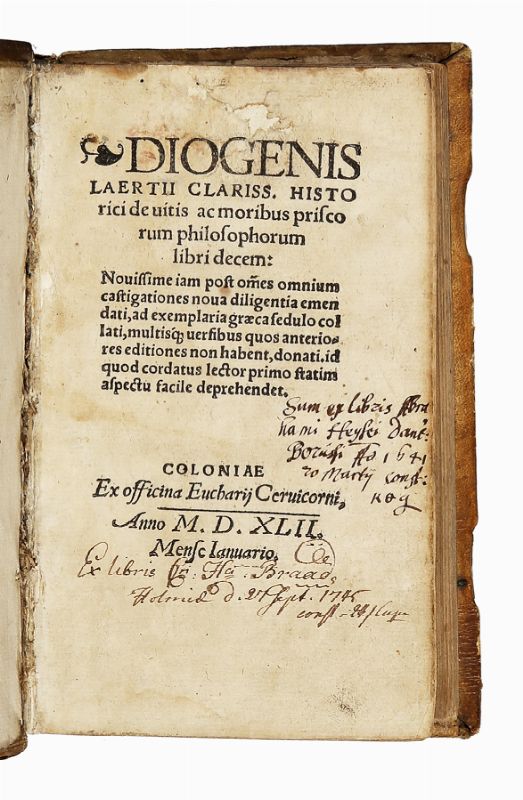 DIOGENIS
LAERTII CLARISS. HISTO
rici de uitis ac moribus priſco
rum philoſophorum
libri decem:
Nouiſſime iam poſt om̃es omnium
caſtigationes noua diligentia emen
dati, ad exemplaria græca ſedulo col
lati, multisq́; uerſibus quos anterio-
res editiones non habent, donati, id
quod cordatus lector primo ſtatim
aſpectu facile deprehendet.
Sum ex libris Abra
hami Heyſei Dant:
Boruſſi Aõ 1641
Martij conſt:
COLONIAE
Ex officina Eucharij Ceruicorni,
Anno M. D. XLII.
Menſe Ianuario.
Ex libris Braad,
Holmiæ d. 27 Sept. 1745
conſt